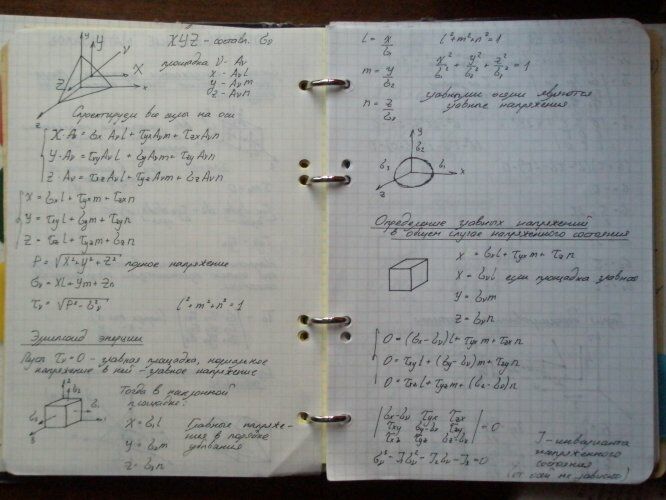 XYZ - составл. σν
площадка ν - Aν
x - Aν l
y - Aν m
z - Aν n
Спроектируем все силы на оси
X·Aν = σx Aν l + τyx Aν m + τzx Aν n
Y·Aν = τxy Aν l + σy Aν m + τzy Aν n
Z·Aν = τxz Aν l + τyz Aν m + σz Aν n
X = σx l + τyx m + τzx n
Y = τxy l + σy m + τzy n
Z = τxz l + τyz m + σz n
P = √X²+Y²+Z² полное напряжение
σν = Xl + Ym + Zn
τν = √P² - σ²ν l²+m²+n²=1
Эллипсоид энерции
Пусть τν = 0 - главная площадка, нормальное
напряжение в ней - главное напряжение
Тогда в наклонной
площадке:
X = σ1 l
Y = σ2 m
Z = σ3 n
Главные напряже-
ния в порядке
убывания
l = x/σ1 l²+m²+n²=1
m = y/σ2 x²/σ1² + y²/σ2² + z²/σ3² = 1
n = z/σ3
главные напряжения
Определение главных напряжений
в общем случае напряжённого состояния
X = σx l + τyx m + τzx n
X = σν l если площадка главная
Y = σν m
Z = σν n
0 = (σx - σν) l + τyx m + τzx n
0 = τxy l + (σy - σν) m + τzy n
0 = τxz l + τyz m + (σz - σν) n
σx-σν τyx τzx
τxy σy-σν τzy = 0
τxz τyz σz-σν
σν³ - J1σν² - J2σν - J3 = 0
J - инварианта
напряжённого
состояния
(от осей не зависит)